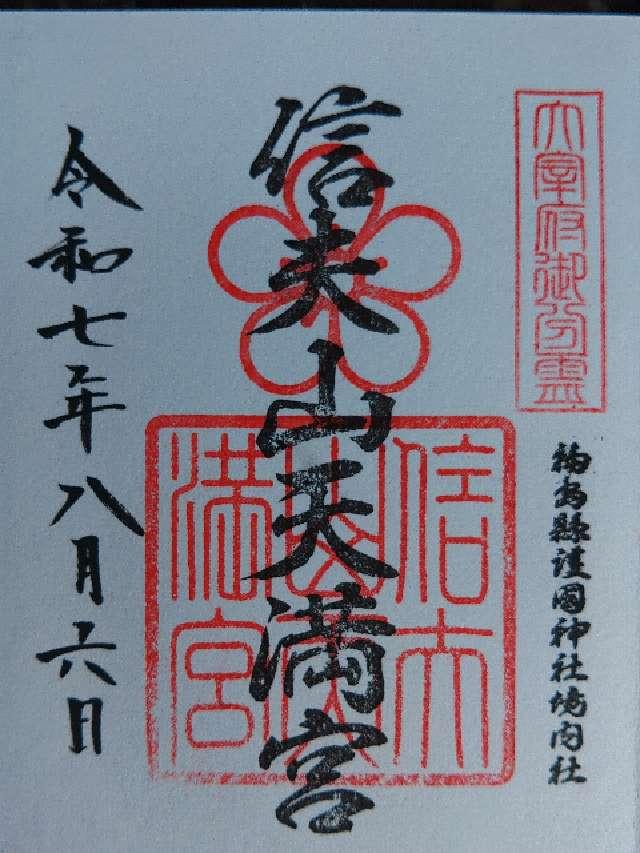 大宰府御分霊
福島縣護國神社境内社
信夫山天満宮
信夫山天満宮
令和七年八月六日